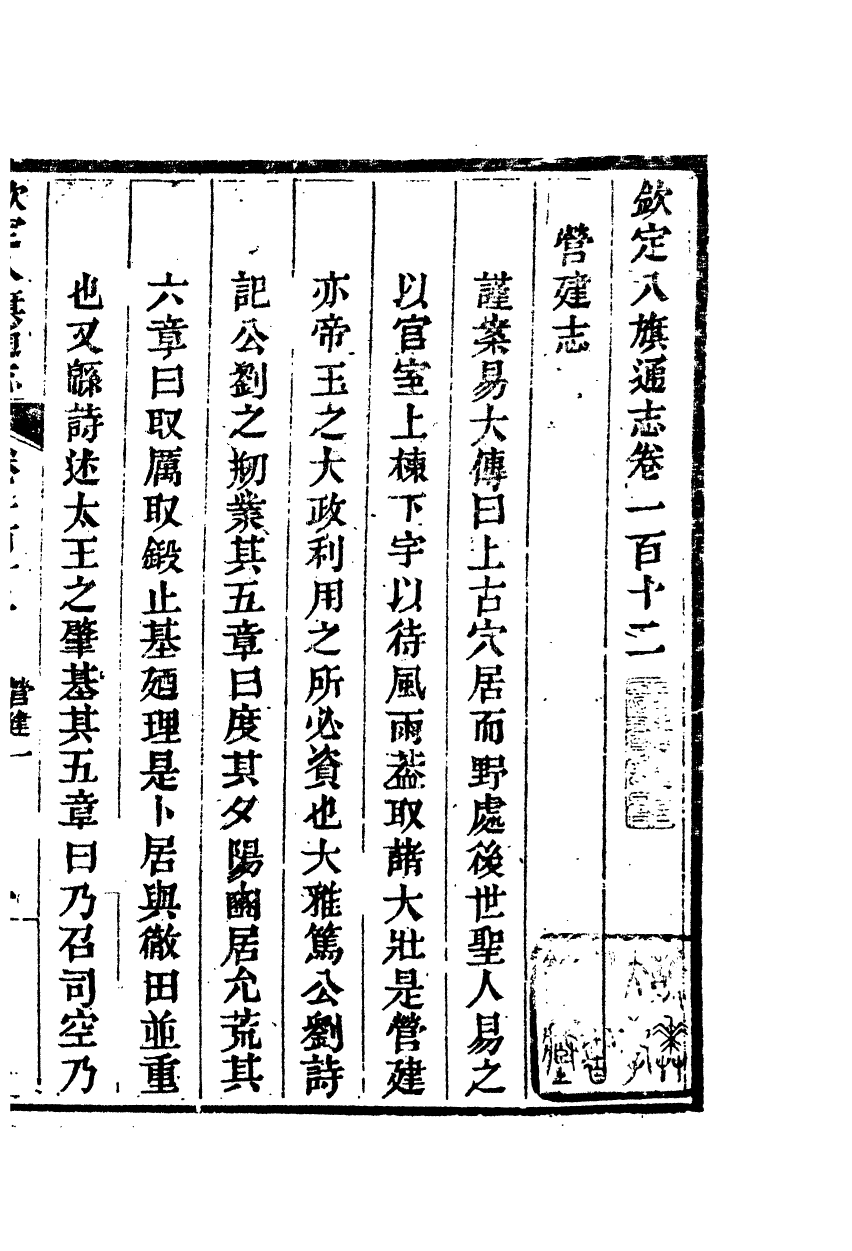 欽定八旗通志卷一百十二
營建志
謹案易大傳曰上古穴居而野處後世聖人易之
以官室上棟下宇以待風雨葢取諸大壯是營建
亦帝王之大政利用之所必資也大雅篤公劉詩
記公劉之剏業其五章曰度其夕陽豳居允荒其
六章曰取厲取鍛止基廼理是卜居與徹田並重
也又緜詩述太王之肇基其五章曰乃召司空乃
營建一